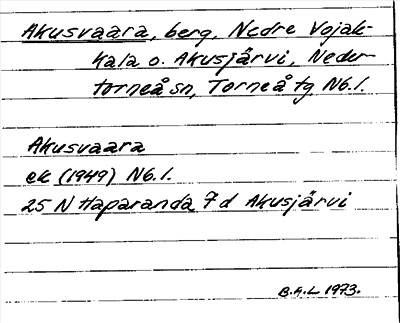 Akusvaara, berg, Nedre Vojak-
kala o. Akusjärvi, Neder-
torneå sn, Torneå tg Nb.l.
Akusvaara
ek (1949) Nb.l.
25 N Haparanda 7d Akusjärvi
B.A.L 1973.